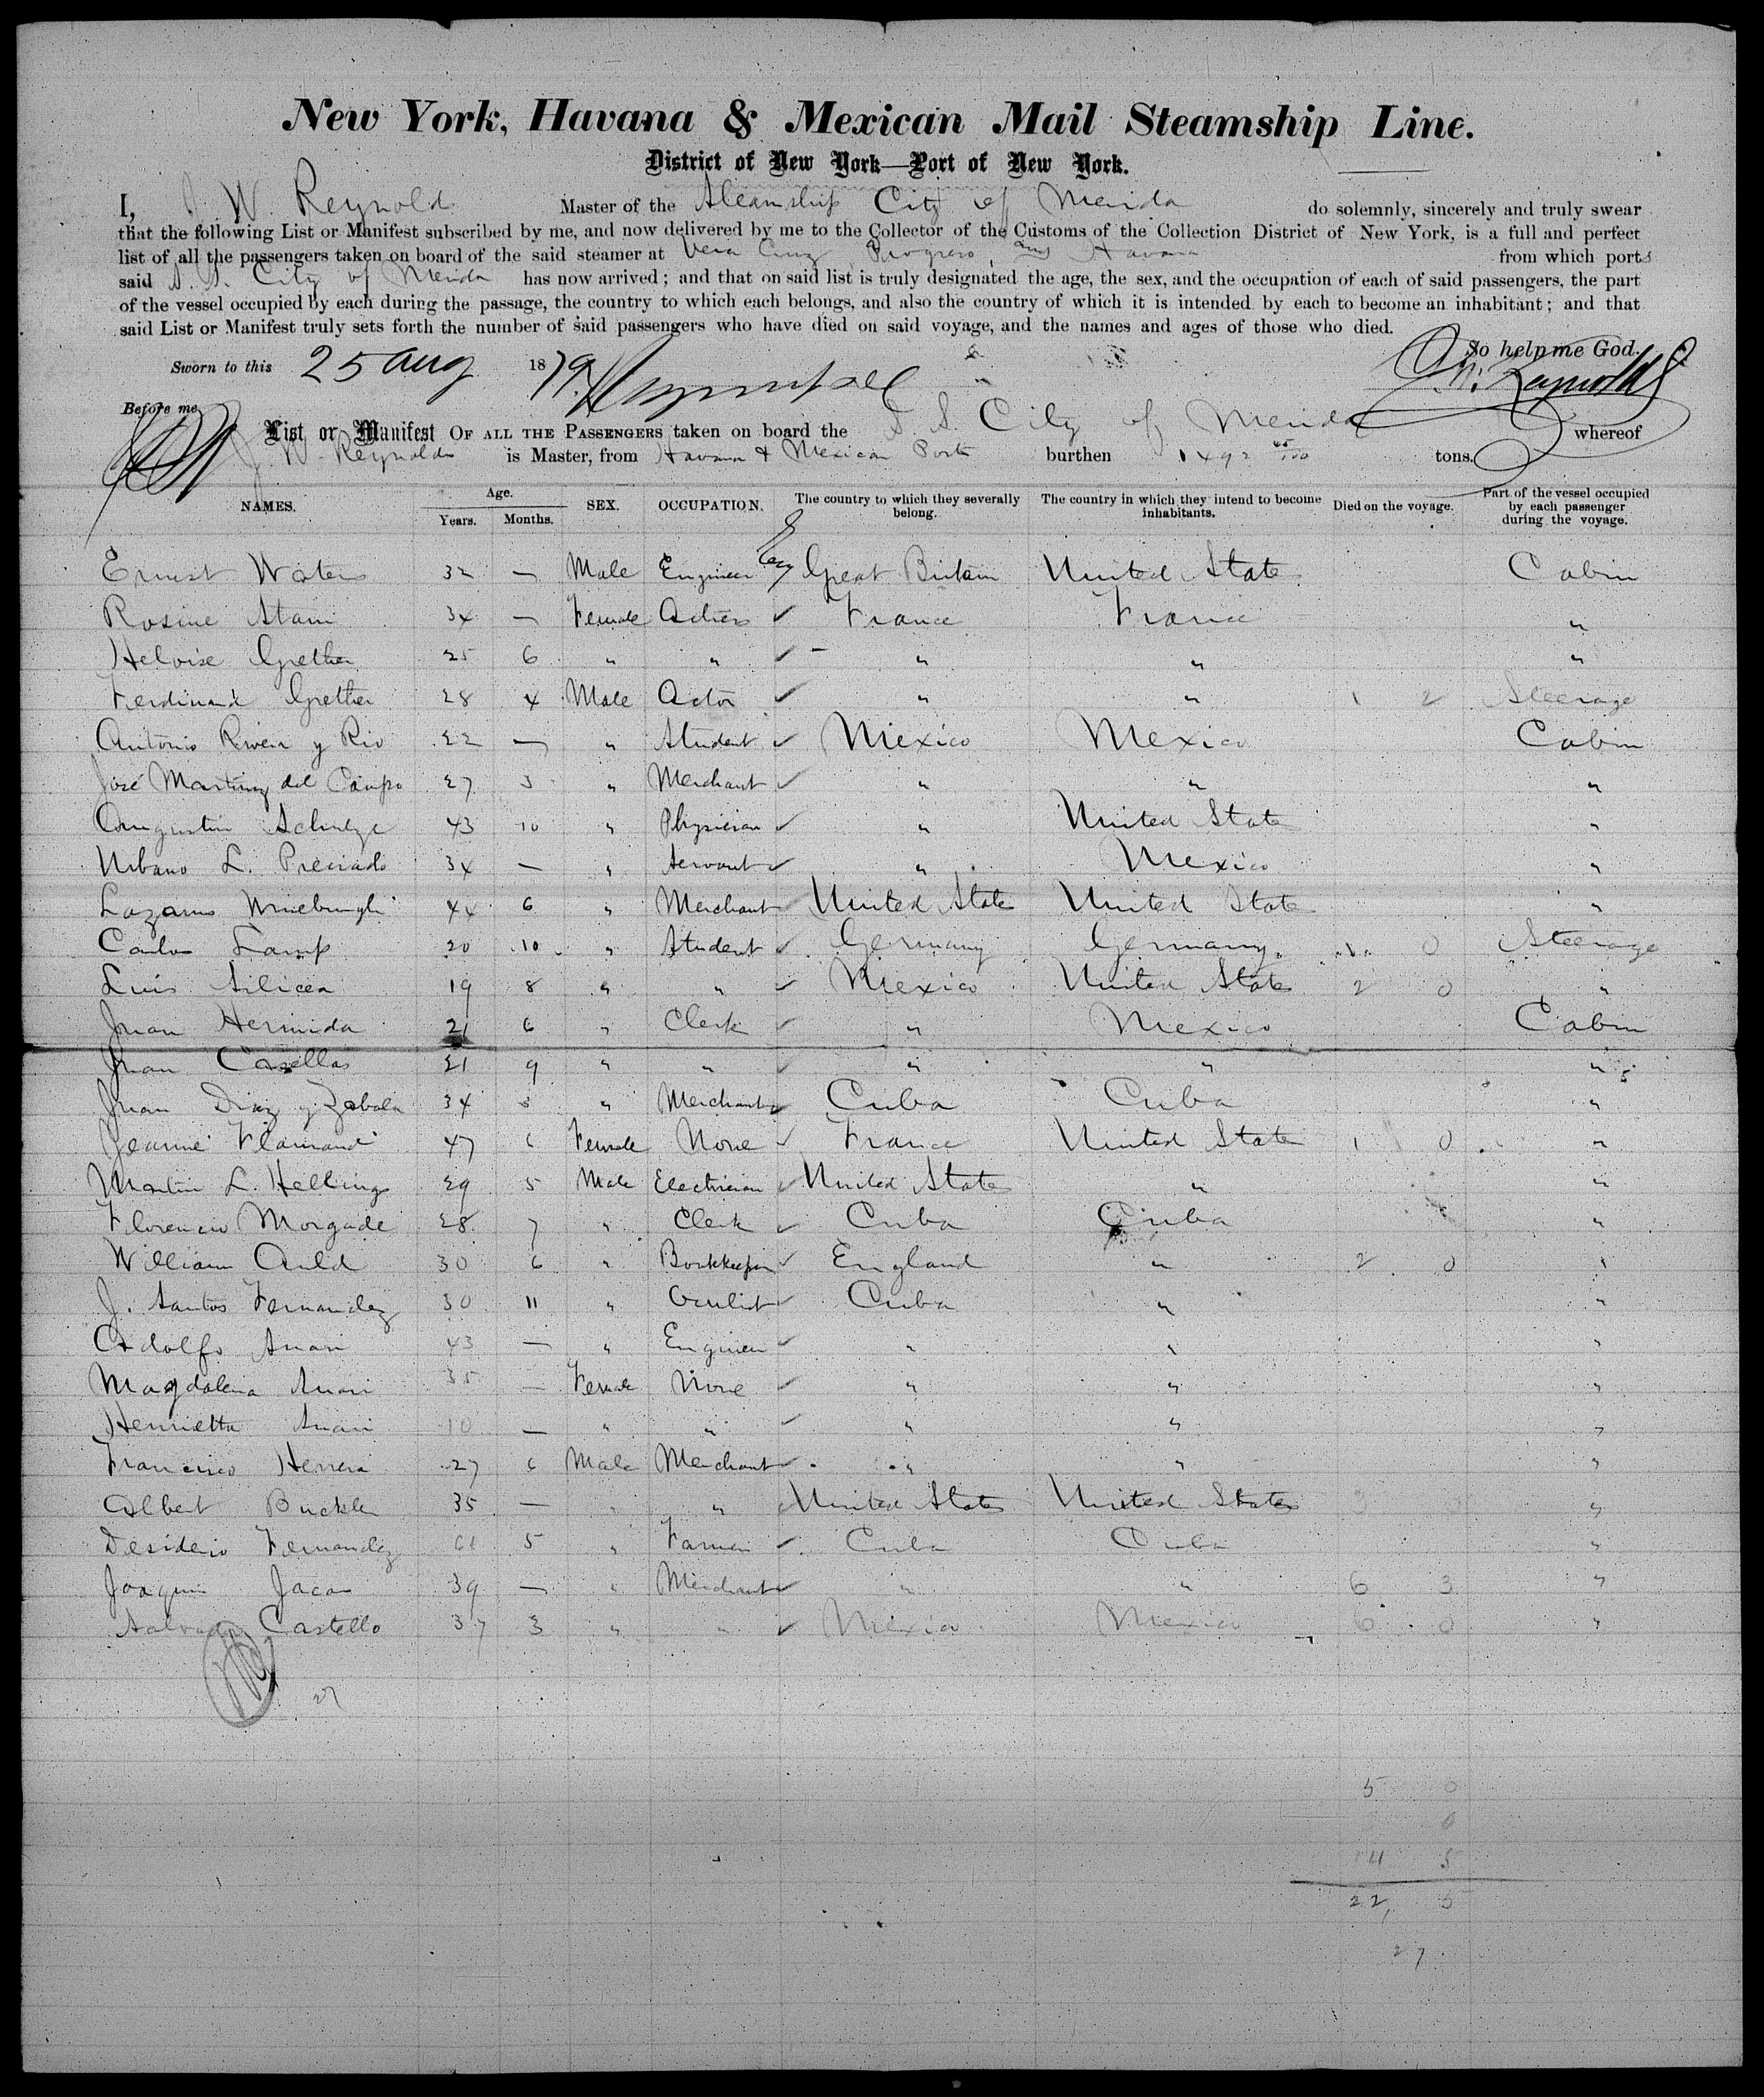 New York, Havana & Mexican Mail Steamship Line.
District of New York—Port of New York.
I, J. W. Reynolds Master of the Steamship City of Merida do solemnly, sincerely and truly swear
that the following List or Manifest subscribed by me, and now delivered by me to the Collector of the Customs of the Collection District of New York, is a full and perfect
list of all the passengers taken on board of the said steamer at Vera Cruz Progreso, and Havana from which ports
said S. S. City of Merida has now arrived; and that on said list is truly designated the age, the sex, and the occupation of each of said passengers, the part
of the vessel occupied by each during the passage, the country to which each belongs, and also the country of which it is intended by each to become an inhabitant; and that
said List or Manifest truly sets forth the number of said passengers who have died on said voyage, and the names and ages of those who died.
So help me God.
Sworn to this 25 Aug 1879 J. W. Reynolds
Before me
List or Manifest OF ALL THE PASSENGERS taken on board the S. S. City of Merida whereof
J. W. Reynolds is Master, from Havana & Mexican Ports burthen 1492 45/100 tons.
NAMES. Age. Years. Months. SEX. OCCUPATION. The country to which they severally belong. The country in which they intend to become inhabitants. Died on the voyage. Part of the vessel occupied by each passenger during the voyage.
Ernest Waters 32 — Male Engineer Great Britain United States Cabin
Rosine Stani 34 — Female Actress France France "
Heloise Grether 25 6 " " " " "
Ferdinand Grether 28 4 Male Actor " " 1 2 Steerage
Antonio Rivera y Rio 22 — " Student Mexico Mexico Cabin
José Martinez del Campo 27 3 " Merchant " " "
Augustin Schulze 43 10 " Physician " United States "
Urbano L. Preciado 34 — " Servant " Mexico "
Lazarus 44 6 " Merchant United States United States "
Carlos Lamp 20 10 " Student Germany Germany 1 0 Steerage
Luis Silicea 19 8 " " Mexico United States 2 0 "
Juan Hermida 21 6 " Clerk " Mexico Cabin
Juan Casellas 21 9 " " " " "
Juan Diaz y Zabala 34 " Merchant Cuba Cuba "
Jeanne Flamand 47 6 Female None France United States 1 0 "
Martin L. Hellings 29 5 Male Electrician United States " "
Florencio Morgade 28 7 " Clerk Cuba Cuba "
William Auld 30 6 " Bookkeeper England " 2 0 "
J. Santos Fernandez 30 11 " Oculist Cuba " "
Adolfo 43 — " Engineer " " "
Magdalena 35 — Female None " " "
Henrietta 10 — " " " " "
Francisco Herrera 27 6 Male Merchant " " "
Albert Buckler 35 — " " United States United States "
Desiderio Fernandez 61 5 " Farmer Cuba Cuba "
Joaquin Jacas 39 — " Merchant " " 6 3 "
Salvador Castello 37 3 " " Mexico Mexico 6 0 "
27
5 0
6
11 5
22, 5
27